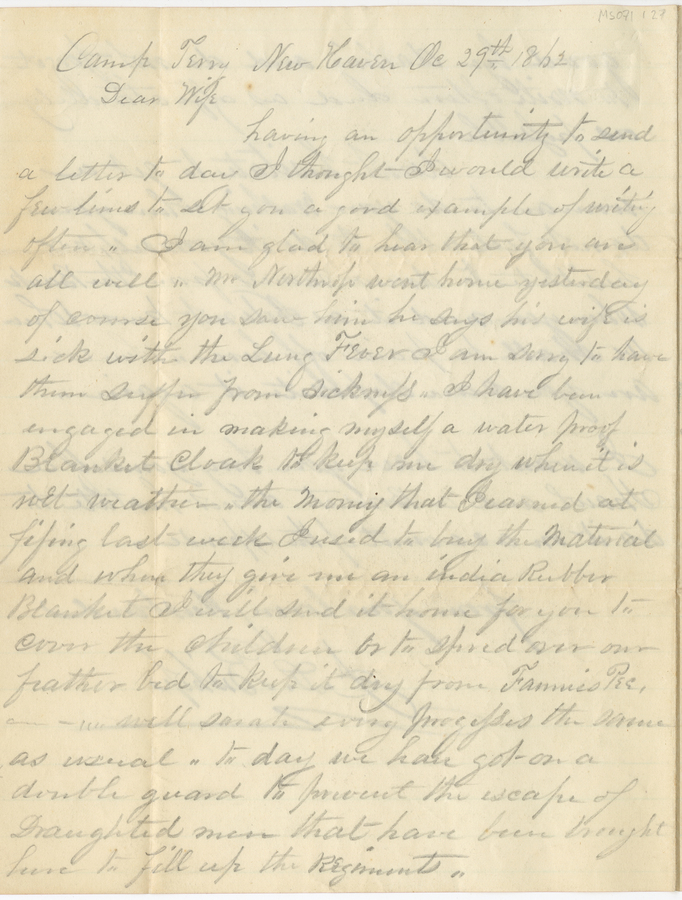 MS071 127
Camp Terry New Haven Oc 29th 1862
Dear Wife
having an opportunity to send
a letter to day I thought I would write a
few lines to set you a good example of writing
often " I am glad to hear that you are
all well " Mr Northrop went home yesterday
of course you saw him he says his wife is
sick with the Lung Fever I am sorry to have
them suffer from sickness " I have been
engaged in making myself a water proof
Blanket Cloak to keep me dry when it is
wet weather " the Money that I earned at
fifing last week I used to buy the Material
and when they give me an india Rubber
Blanket I will send it home for you to
cover the children or to spread over our
feather bed to keep it dry from Fannies Pee,
well sarah every progresses the same
as usual " to day we have got on a
double guard to prevent the escape of
Draughted men that have been brought
here to fill up the Regiments "